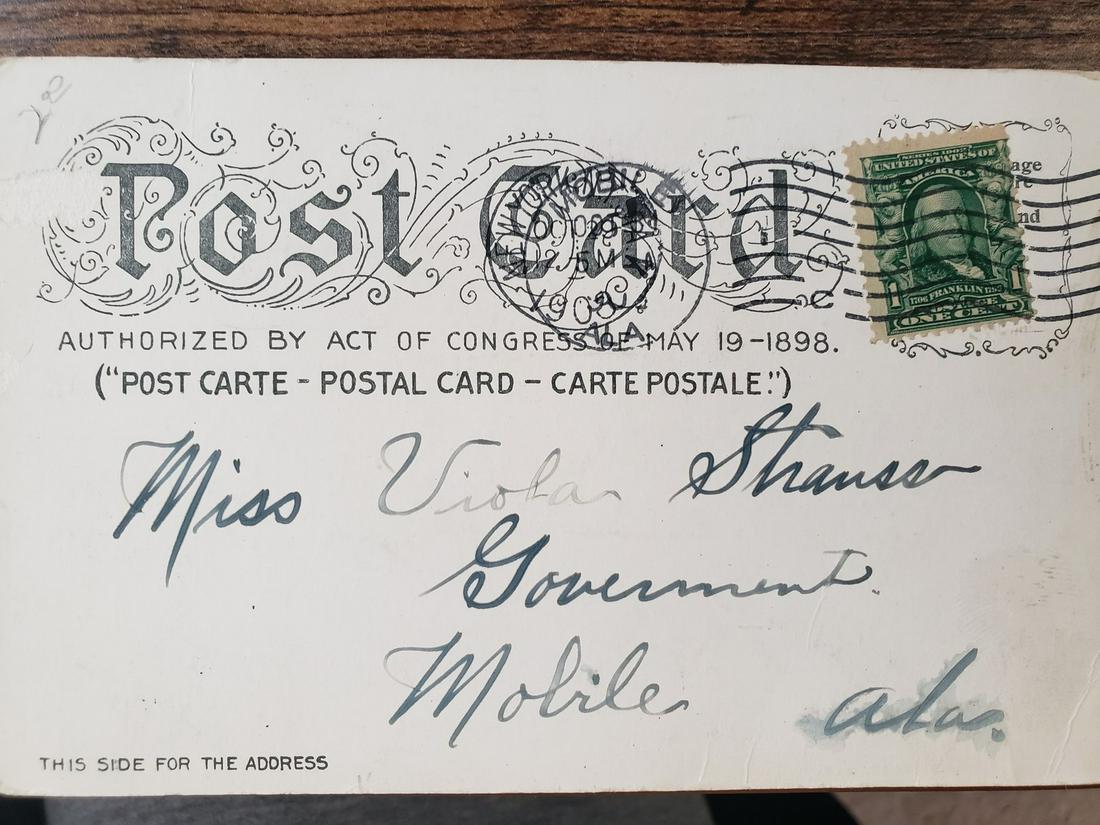 Post Card
SERIES 1902
UNITED STATES OF
AMERICA
1 1
1706 FRANKLIN 1790
ONE CENT
NEW YORK
1905
ALA
AUTHORIZED BY ACT OF CONGRESS OF MAY 19-1898.
("POST CARTE - POSTAL CARD - CARTE POSTALE.")
Miss Viola Strauss
Goverment.
Mobile Ala.
THIS SIDE FOR THE ADDRESS